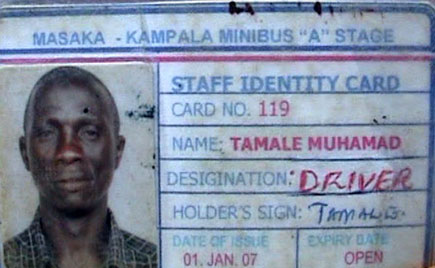 MASAKA - KAMPALA MINIBUS "A" STAGE
STAFF IDENTITY CARD
CARD NO. 119
NAME: TAMALE MUHAMAD
DESIGNATION: DRIVER
HOLDER'S SIGN: TAMALE
DATE OF ISSUE EXPIRY DATE
01. JAN. 07 OPEN